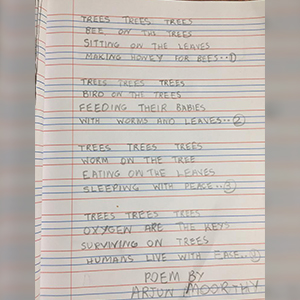 TREES TREES TREES
BEE ON THE TREES
SITTING ON THE LEAVES
MAKING HONEY FOR BEES..①
TREES TREES TREES
BIRD ON THE TREES
FEEDING THEIR BABIES
WITH WORMS AND LEAVES..②
TREES TREES TREES
WORM ON THE TREE
EATING ON THE LEAVES
SLEEPING WITH PEACE..③
TREES TREES TREES
OXYGEN ARE THE KEYS
SURVIVING ON TREES
HUMANS LIVE WITH EASE..④
POEM BY
ARJUN MOORTHY